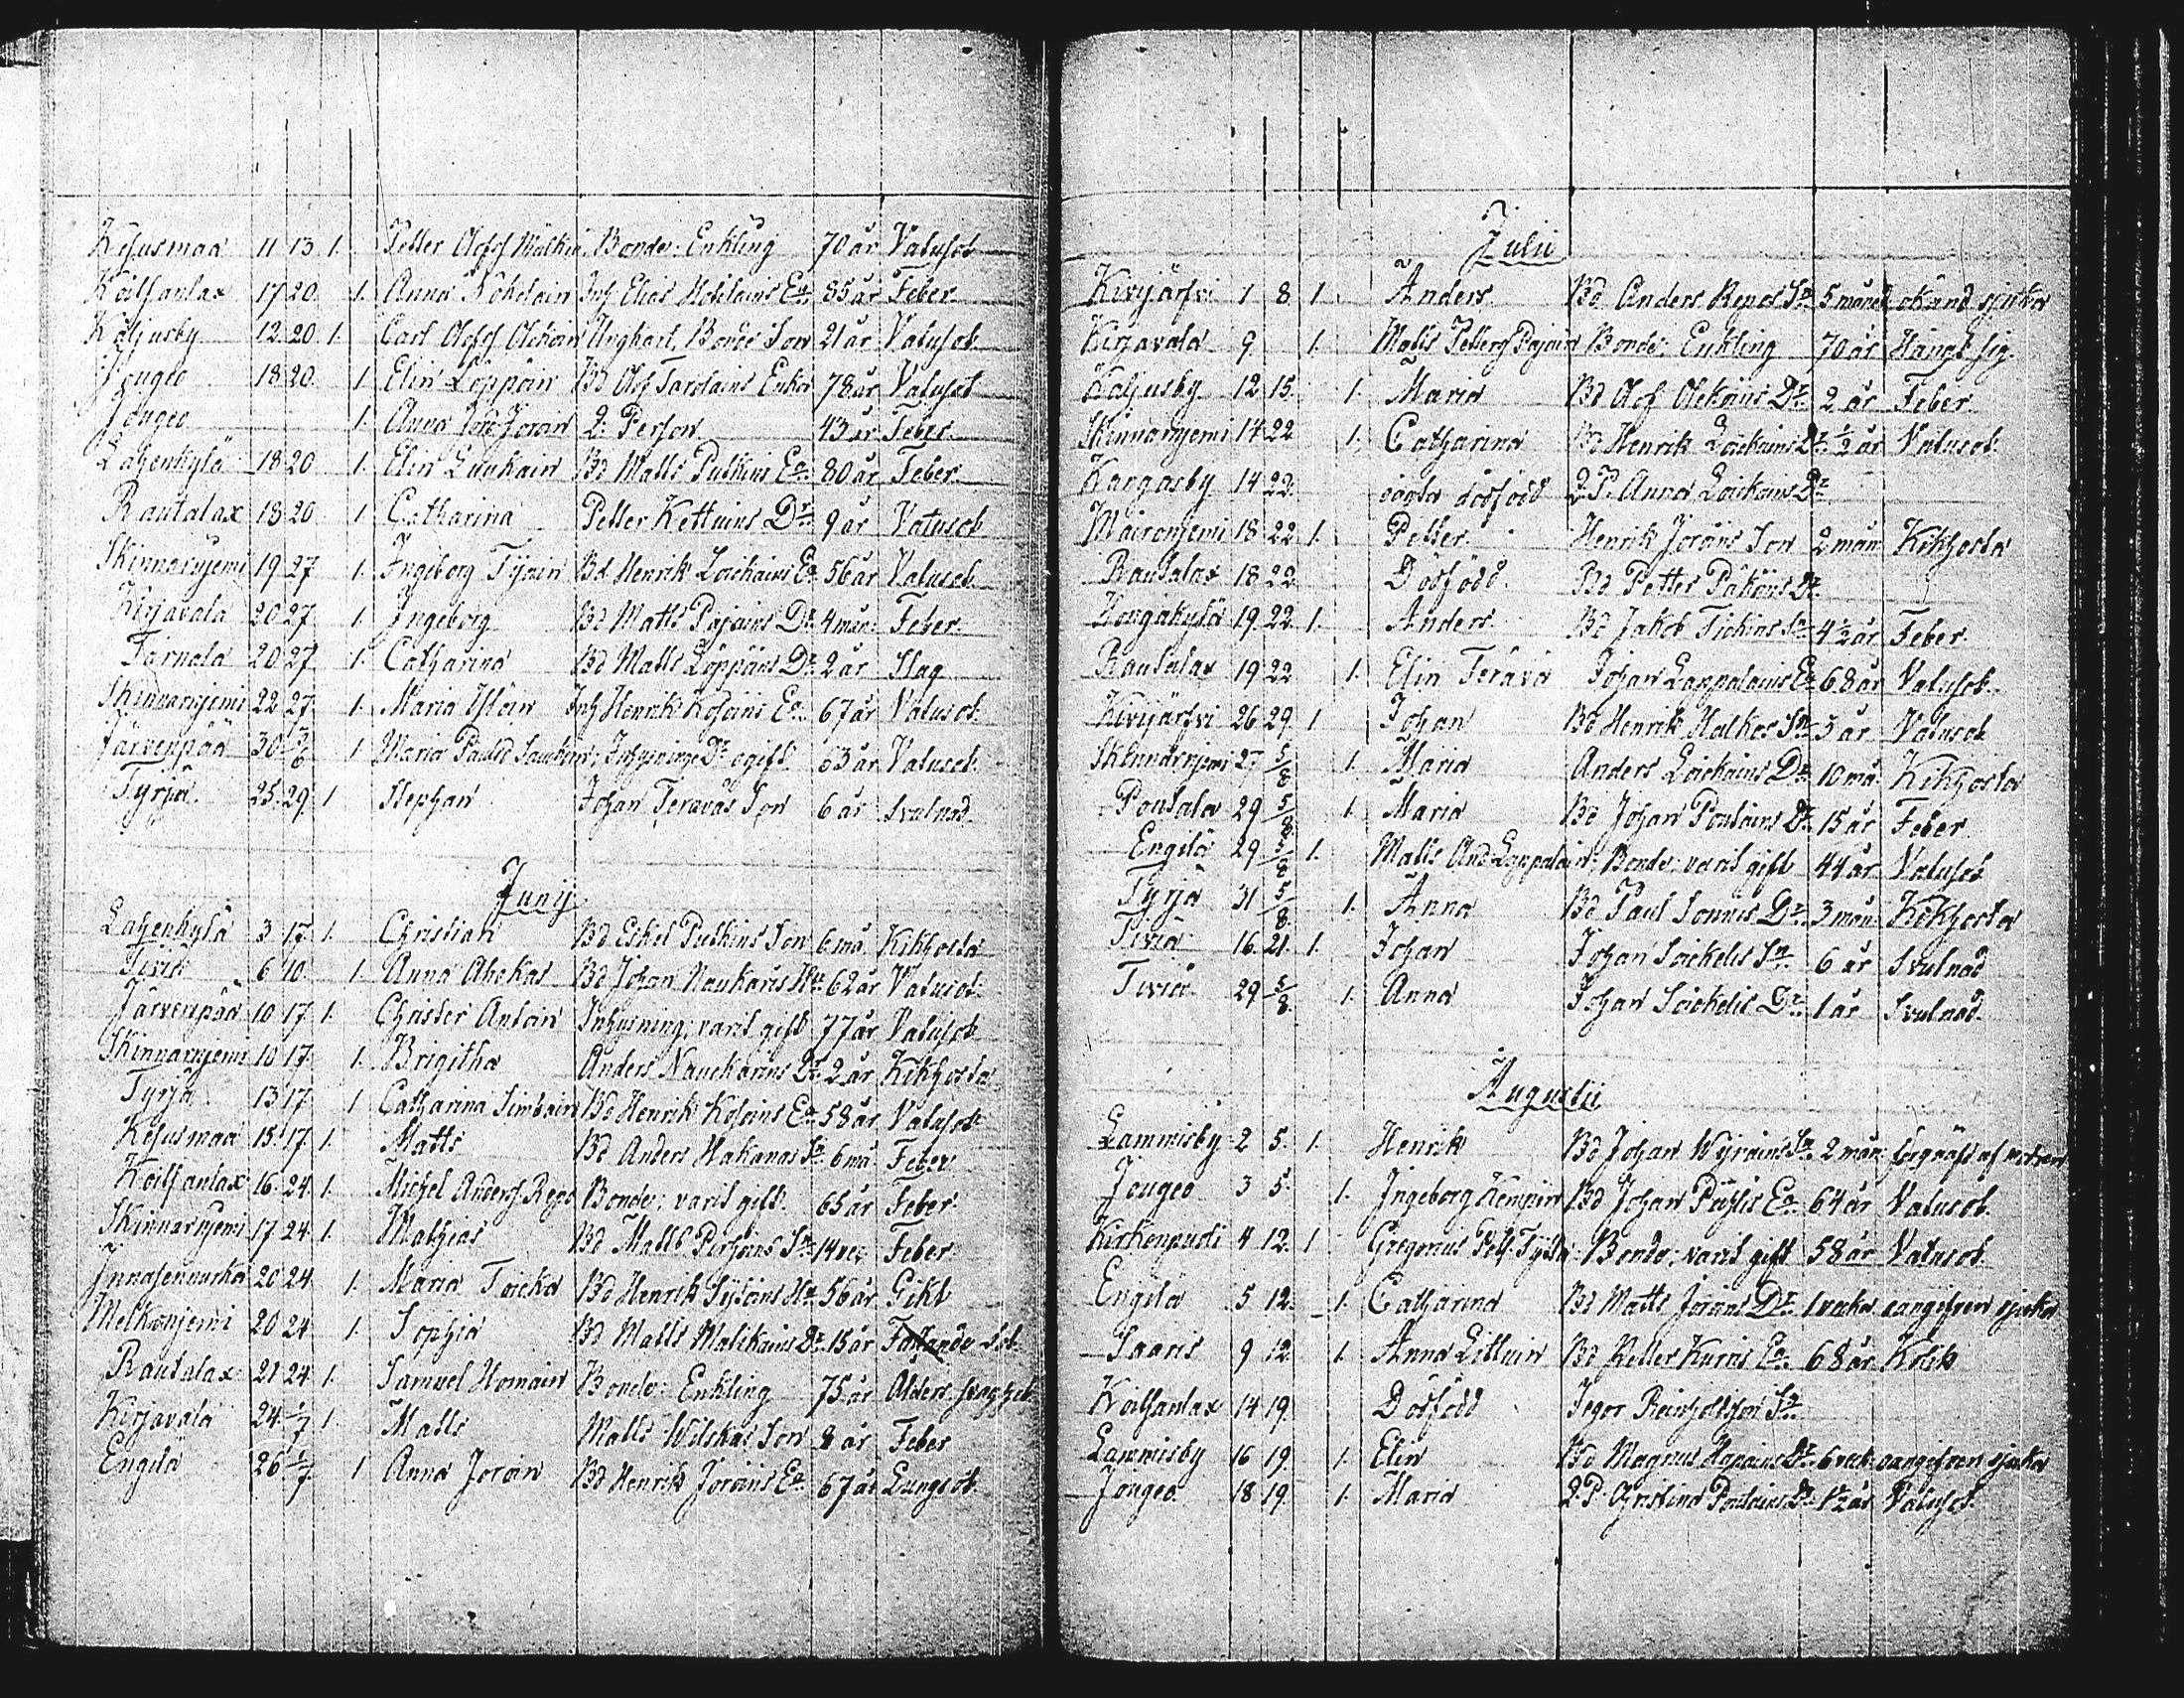 Kesusmaa 11 13 1. Petter Olofs Mälkiä, Bonde: Enkling 70 år Vatusot
Koitsanlax 17 20 1. Anna Inh Elias Enka 85 år Feber
Kaljusby 12 20 1. Carl Olofs Olckoin Ynghart, Bonde Son 21 år Vatusot
Jougeo 18 20 1. Elin Löppöin Bd Olof Tarolains Enka 78 år Vatusot
Jougeo 1. Anna Joroin 2. Person 43 år Feber
Lahenkylä 18 20 1. Elin Luukain Bd Matts Putkins Ea 80 år Feber
Rautalax 18 20 1. Catharina Petter Kettuins Dr 9 år Vatusot
Skinnarnjemi 19 27 1. Ingeborg Tijäin Bd Henrik Loickains Ea 56 år Vatusot
Kirjavala 20 27 1. Ingeborg Bd Matts Pajains Dr 4 mån: Feber
Tarnala 20 27 1. Catharina Bd Matts Löppöns Dr 2 år Slag
Skinnarnjemi 22 27 1. Maria Inh Henrik Kosoins Ea 67 år Vatusot
Järvenpää 30 3/6 1 Maria Paulsd Inhysninge Dr ogift 63 år Vatusot
Tyrjä 25 29 1 Stephan Johan Teräväs Son 6 år Svulnad
Junij
Lahenkylä 3 17 1. Christian Bd Eskel Putkins Son 6 må Kikhosta
Tiviä 6 10 1. Anna Ahokas Bd Johan Naukaris Hu 62 år Vatusot
Järvenpää 10 17 1. Christer Antoin Inhysning, varit gift 77 år Vatusot
Skinnarnjemi 10 17 1. Brigitha Anders Nauckarins Dr 2 år Kikhosta
Tyrjä 13 17 1 Catharina Simboin Bd Henrik Kosoins Ea 58 år Vatusot
Kesusmaa 15 17 1. Matts Bd Anders Hakanas Sn 6 må Feber
Koitsanlax 16 24 1. Michel Anders Repo Bonde: varit gift 65 år Feber
Skinnarnjemi 17 24 1. Mathias Bd Matts Sn 14 vec Feber
20 24 1. Maria Toicka Bd Henrik Hu 56 år Gikt
Melkonjemi 20 24 1. Sophia Bd Matts Malikains Dr 15 år Fallande Sot
Rautalax 21 24 1. Samuel Homain Bonde: Enkling 75 år Ålders
Kirjavala 24 1/7 1. Matts Matts Wilskas Son 8 år Feber
Engilä 26 1/7 1 Anna Joroin Bd Henrik Joroins Ea 67 år Lungsot
Julii
Kivijärfvi 1 8 1. Anders Bd Anders Repos Sn 5 månad okänd sjuka
Kirjavala 9 1. Matts Petters Pajain Bonde: Enkling 70 år Hängt sig
Kaljusby 12 15 1. Maria Bd Olof Olckoins Dr 2 år Feber
Skinnarnjemi 14 22 1. Catharina Bd Henrik Loickains Dr 1/2 år Vatusot
Kangasby 14 22 oägta dödfödd Q.P. Anna Loickains Dr
Mäironjemi 18 22 1. Petter Henrik Joroins Son 2 mån Kikhosta
Rautalax 18 22 Dödfödd Bd Petter Päköns Dr
Kongakylä 19 22 1. Anders Bd Jakob Tickins Sn 4 1/2 år Feber
Rautalax 19 22 1. Elin Terävä Johan Lappalains Ea 68 år Vatusot
Kivijärfvi 26 29 1 Johan Bd Henrik Halkos Sn 3 år Vatusot
Skinnarnjemi 27 5/8 1. Maria Anders Loickains Dr 10 må Kikhosta
Poutala 29 5/8 1. Maria Bd Johan Poutains Dr 15 år Feber
Engilä 29 5/8 1. Matts And: Lappalain, Bonde: varit gift 44 år Vatusot
Tyrjä 31 5/8 1. Anna Bd Paul Sonnis Dr 3 mån: Kikhosta
Tiviä 16 21 1. Johan Johan Soickelis Sn 6 år Svulnad
Tiviä 29 5/8 1. Anna Johan Soickelis Dr 1 år Svulnad
Augustii
Lammisby 2 5 1. Henrik Bd Johan Wyräins Sn 2 mån: af modren
Jougeo 3 5 1. Ingeborg Kempin Bd Johan Ea 64 år Vatusot
Kirkenpuoli 4 12 1 Gregorius Pett: Bonde: varit gift 58 år Vatusot
Engilä 5 12 1. Catharina Bd Matts Joroins Dr 1 vecka oangifven sjuka
Saaris 9 12 1. Anna Littuin Bd Petter Kuros Ea 68 år Kolik
Koitsanlax 14 19 Dödfödd Jegor Reinholtsson Sn
Lammisby 16 19 1. Elin Bd Magnus Hapains Dr 6 veck: oangifven sjuka
Jougeo 18 19 1. Maria Q.P. Christina Poutains Dr 1/2 år Vatusot